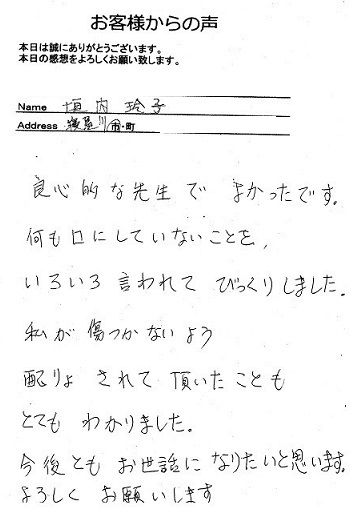 お客様からの声
本日は誠にありがとうございます。
本日の感想をよろしくお願い致します。
Name 垣内 玲子
Address 寝屋川 市・町
良心的な先生で よかったです。
何も口にしていないことを、
いろいろ 言われて びっくりしました。
私が 傷つかないよう
配りょ されて 頂いたことも
とても わかりました。
今後とも お世話に なりたいと思います。
よろしく お願いします